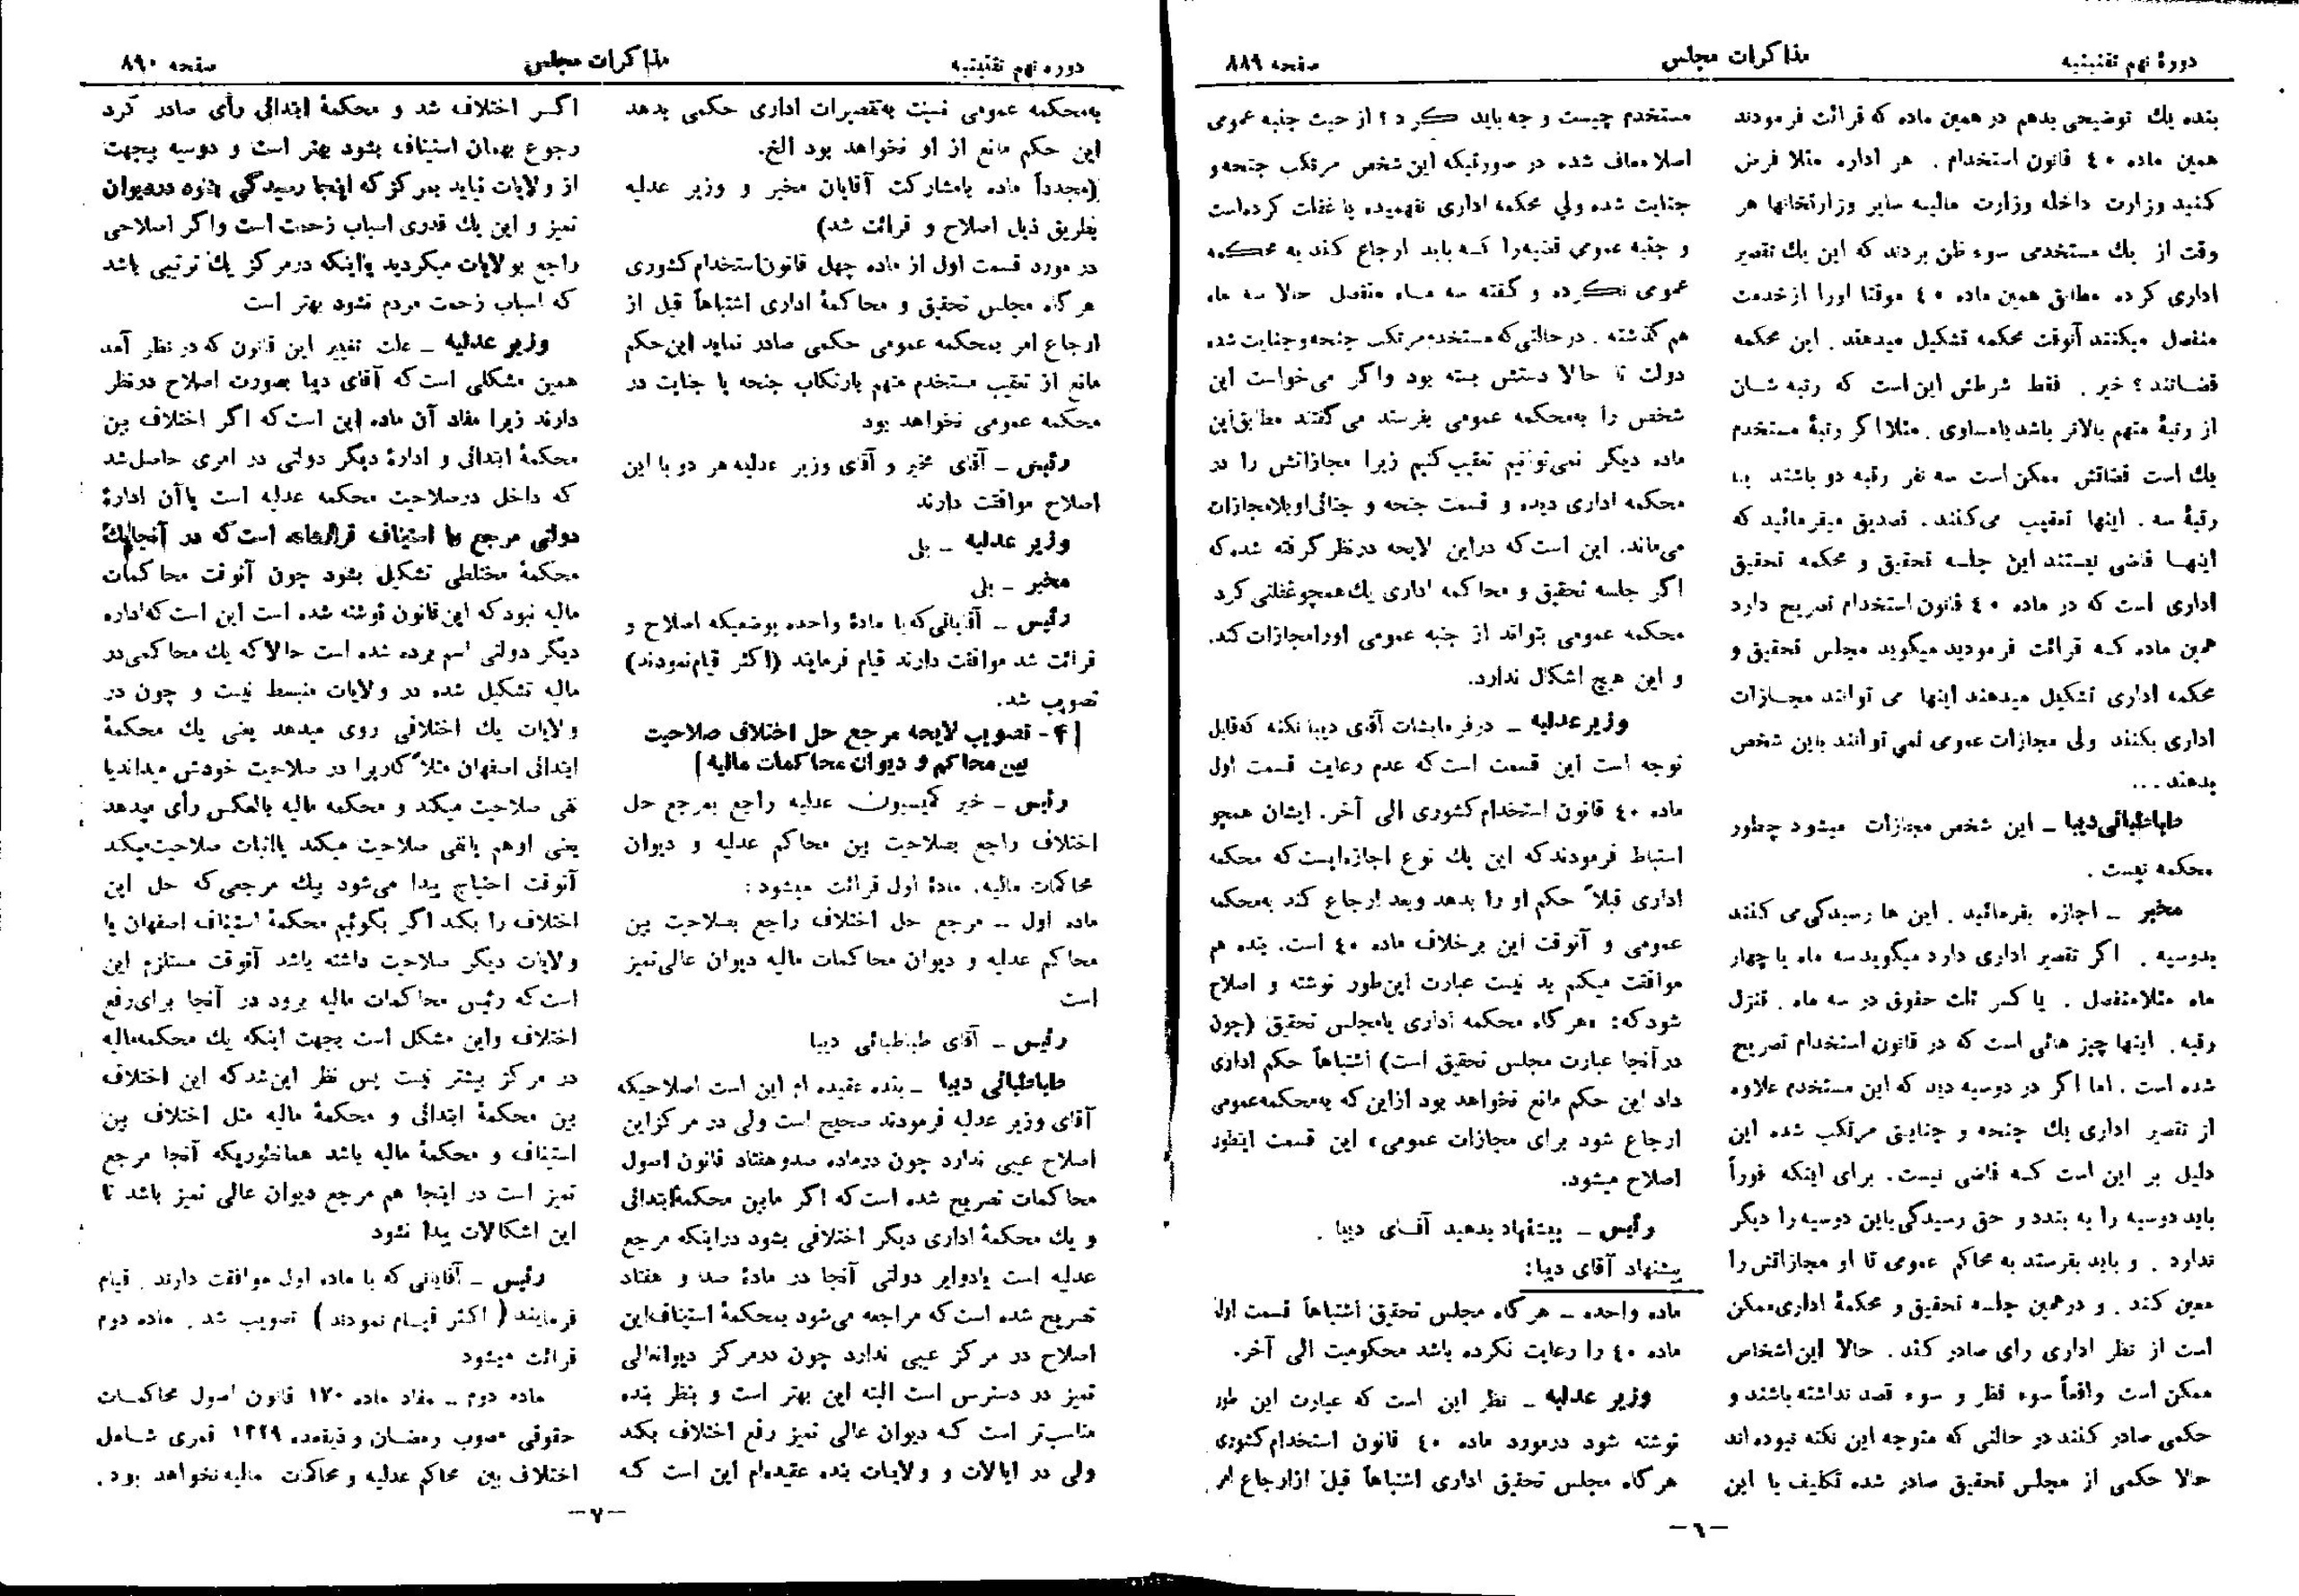 دورهٔ نهم تقنینیه
مذاکرات مجلس
صفحه ۸۸۹
بنده یك توضیحی بدهم در همین ماده که قرائت فرمودند
همین ماده ۴۰ قانون استخدام . هر اداره مثلا فرض
کنید وزارت داخله وزارت مالیه سایر وزارتخانها هر
وقت از یك مستخدمی سوء ظن بردند که این یك تقصیر
اداری کرده مطابق همین ماده ۴۰ موقتا اورا از خدمت
منفصل میکنند آنوقت محکمه تشکیل میدهند . این محکمه
قضاتند ؟ خیر . فقط شرطش این است که رتبه شان
از رتبهٔ متهم بالاتر باشد یا مساوی . مثلا اگر رتبهٔ مستخدم
یك است قضاتش ممکن است سه نفر رتبه دو باشند یا
رتبهٔ سه . اینها تعقیب می‌کنند . تصدیق میفرمائید که
اینها قاضی نیستند این جلسه تحقیق و محکمه تحقیق
اداری است که در ماده ۴۰ قانون استخدام تصریح دارد
همین ماده که قرائت فرمودید میگوید مجلس تحقیق و
محکمه اداری تشکیل میدهند اینها می توانند مجازات
اداری بکنند ولی مجازات عمومی نمی توانند باین شخص
بدهند ...
طباطبائی دیبا ـ این شخص مجازات میشود چطور
محکمه نیست .
مخبر ـ اجازه بفرمائید . این ها رسیدگی می کنند
بدوسیه . اگر تقصیر اداری دارد میگوید سه ماه یا چهار
ماه مثلا منفصل . یا کسر ثلث حقوق در سه ماه . تنزل
رتبه . اینها چیز هائی است که در قانون استخدام تصریح
شده است . اما اگر در دوسیه دید که این مستخدم علاوه
از تقصیر اداری یك جنحه و جنایتی مرتکب شده این
دلیل بر این است که قاضی نیست . برای اینکه فوراً
باید دوسیه را به بندد و حق رسیدگی باین دوسیه را دیگر
ندارد . و باید بفرستد به محاکم عمومی تا او مجازاتش را
معین کند . و در همین جلسه تحقیق و محکمهٔ اداری ممکن
است از نظر اداری رای صادر کند . حالا این اشخاص
ممکن است واقعاً سوء نظر و سوء قصد نداشته باشند و
حکمی صادر کنند در حالتی که متوجه این نکته نبوده اند
حالا حکمی از مجلس تحقیق صادر شده تکلیف با این
مستخدم چیست و چه باید کرد ؟ از حیث جنبه عمومی
اصلا معاف شده در صورتیکه این شخص مرتکب جنحه و
جنایت شده ولی محکمه اداری نفهمیده یا غفلت کرده است
و جنبه عمومی قضیه را که باید ارجاع کند به محکمه
عمومی نکرده و گفته سه ماه منفصل حالا سه ماه
هم گذشته . در حالتی که مستخدم مرتکب جنحه و جنایت شده
دولت تا حالا دستش بسته بود و اگر می‌خواست این
شخص را به‌محکمه عمومی بفرستد می‌گفتند مطابق این
ماده دیگر نمی‌توانیم تعقیب کنیم زیرا مجازاتش را در
محکمه اداری دیده و قسمت جنحه و جنائی او بلا مجازات
می‌ماند. این است که در این لایحه در نظر گرفته شده که
اگر جلسه تحقیق و محاکمه اداری یك همچو غفلتی کرد
محکمه عمومی بتواند از جنبه عمومی اورا مجازات کند.
و این هیچ اشکال ندارد.
وزیر عدلیه ـ در فرمایشات آقای دیبا نکته که قابل
توجه است این قسمت است که عدم رعایت قسمت اول
ماده ۴۰ قانون استخدام کشوری الی آخر. ایشان همچو
استنباط فرمودند که این یك نوع اجازه‌ایست که محکمه
اداری قبلاً حکم او را بدهد و بعد ارجاع کند به‌محکمه
عمومی و آنوقت این برخلاف ماده ۴۰ است. بنده هم
موافقت میکنم بد نیست عبارت این‌طور نوشته و اصلاح
شود که: «هر گاه محکمه اداری یا مجلس تحقیق (چون
در آنجا عبارت مجلس تحقیق است) اشتباهاً حکم اداری
داد این حکم مانع نخواهد بود از این که به‌محکمه عمومی
ارجاع شود برای مجازات عمومی» این قسمت اینطور
اصلاح میشود.
رئیس ـ پیشنهاد بدهید آقای دیبا .
پیشنهاد آقای دیبا:
ماده واحده ـ هر گاه مجلس تحقیق اشتباهاً قسمت اول
ماده ۴۰ را رعایت نکرده باشد محکومیت الی آخر.
وزیر عدلیه ـ نظر این است که عبارت این طور
نوشته شود در مورد ماده ۴۰ قانون استخدام کشوری
هر گاه مجلس تحقیق اداری اشتباهاً قبل از ارجاع امر
ـ۶ـ
دوره نهم تقنینیه
مذاکرات مجلس
صفحه ۸۹۰
به‌محکمه عمومی نسبت به‌تقصیرات اداری حکمی بدهد
این حکم مانع از او نخواهد بود الخ.
(مجدداً ماده با مشارکت آقایان مخبر و وزیر عدلیه
بطریق ذیل اصلاح و قرائت شد)
در مورد قسمت اول از ماده چهل قانون استخدام کشوری
هر گاه مجلس تحقیق و محاکمهٔ اداری اشتباهاً قبل از
ارجاع امر بمحکمه عمومی حکمی صادر نماید این حکم
مانع از تعقیب مستخدم متهم بارتکاب جنحه یا جنایت در
محکمه عمومی نخواهد بود
رئیس ـ آقای مخبر و آقای وزیر عدلیه هر دو با این
اصلاح موافقت دارند
وزیر عدلیه ـ بلی
مخبر ـ بلی
رئیس ـ آقایانی که با مادهٔ واحده بوضعیکه اصلاح و
قرائت شد موافقت دارند قیام فرمایند (اکثر قیام نمودند)
تصویب شد.
[۴- تصویب لایحه مرجع حل اختلاف صلاحیت
بین محاکم و دیوان محاکمات مالیه]
رئیس ـ خبر کمیسیون عدلیه راجع بمرجع حل
اختلاف راجع بصلاحیت بین محاکم عدلیه و دیوان
محاکمات مالیه. مادهٔ اول قرائت میشود:
ماده اول ـ مرجع حل اختلاف راجع بصلاحیت بین
محاکم عدلیه و دیوان محاکمات مالیه دیوان عالی تمیز
است
رئیس ـ آقای طباطبائی دیبا
طباطبائی دیبا ـ بنده عقیده ام این است اصلاحیکه
آقای وزیر عدلیه فرمودند صحیح است ولی در مرکز این
اصلاح عیبی ندارد چون در ماده صد و هفتاد قانون اصول
محاکمات تصریح شده است که اگر مابین محکمهٔ ابتدائی
و یك محکمهٔ اداری دیگر اختلافی بشود در اینکه مرجع
عدلیه است یا دوایر دولتی آنجا در مادهٔ صد و هفتاد
تصریح شده است که مراجعه می‌شود بمحکمهٔ استیناف این
اصلاح در مرکز عیبی ندارد چون در مرکز دیوانعالی
تمیز در دسترس است البته این بهتر است و بنظر بنده
مناسب‌تر است که دیوان عالی تمیز رفع اختلاف بکند
ولی در ایالات و ولایات بنده عقیده‌ام این است که
اگر اختلاف شد و محکمهٔ ابتدائی رأی صادر کرد
رجوع بهمان استیناف بشود بهتر است و دوسیه بیجهت
از ولایات نیاید بمرکز که اینجا رسیدگی بشود در دیوان
تمیز و این یك قدری اسباب زحمت است و اگر اصلاحی
راجع بولایات میکردید یا اینکه در مرکز یك ترتیبی باشد
که اسباب زحمت مردم نشود بهتر است
وزیر عدلیه ـ علت تغییر این قانون که در نظر آمد
همین مشکلی است که آقای دیبا بصورت اصلاح در نظر
دارند زیرا مفاد آن ماده این است که اگر اختلاف بین
محکمهٔ ابتدائی و ادارهٔ دیگر دولتی در امری حاصل شد
که داخل در صلاحیت محکمه عدلیه است یا آن ادارهٔ
دولتی مرجع با استیناف است که در آنجا یك
محکمهٔ مختلطی تشکیل بشود چون آنوقت محاکمات
مالیه نبود که این قانون نوشته شده است این است که اداره
دیگر دولتی اسم برده شده است حالا که یك محاکمی در
مالیه تشکیل شده در ولایات منبسط نیست و چون در
ولایات یك اختلافی روی میدهد یعنی یك محکمهٔ
ابتدائی اصفهان مثلاً کاریرا در صلاحیت خودش میداند یا
نفی صلاحیت میکند و محکمه مالیه بالعکس رأی میدهد
یعنی او هم یا نفی صلاحیت میکند یا اثبات صلاحیت میکند
آنوقت احتیاج پیدا می‌شود بیك مرجعی که حل این
اختلاف را بکند اگر بگوئیم محکمهٔ استیناف اصفهان یا
ولایات دیگر صلاحیت داشته باشد آنوقت مستلزم این
است که رئیس محاکمات مالیه برود در آنجا برای رفع
اختلاف و این مشکل است بجهت اینکه یك محکمه مالیه
در مرکز بیشتر نیست پس نظر این شد که این اختلاف
بین محکمهٔ ابتدائی و محکمهٔ مالیه مثل اختلاف بین
استیناف و محکمهٔ مالیه باشد همانطوریکه آنجا مرجع
تمیز است در اینجا هم مرجع دیوان عالی تمیز باشد تا
این اشکالات پیدا نشود
رئیس ـ آقایانی که با ماده اول موافقت دارند . قیام
فرمایند ( اکثر قیام نمودند ) تصویب شد . ماده دوم
قرائت میشود
ماده دوم ـ مفاد ماده ۱۷۰ قانون اصول محاکمات
حقوقی مصوب رمضان و ذیقعده ۱۳۲۹ قمری شامل
اختلاف بین محاکم عدلیه و محاکمات مالیه نخواهد بود .
ـ۷ـ